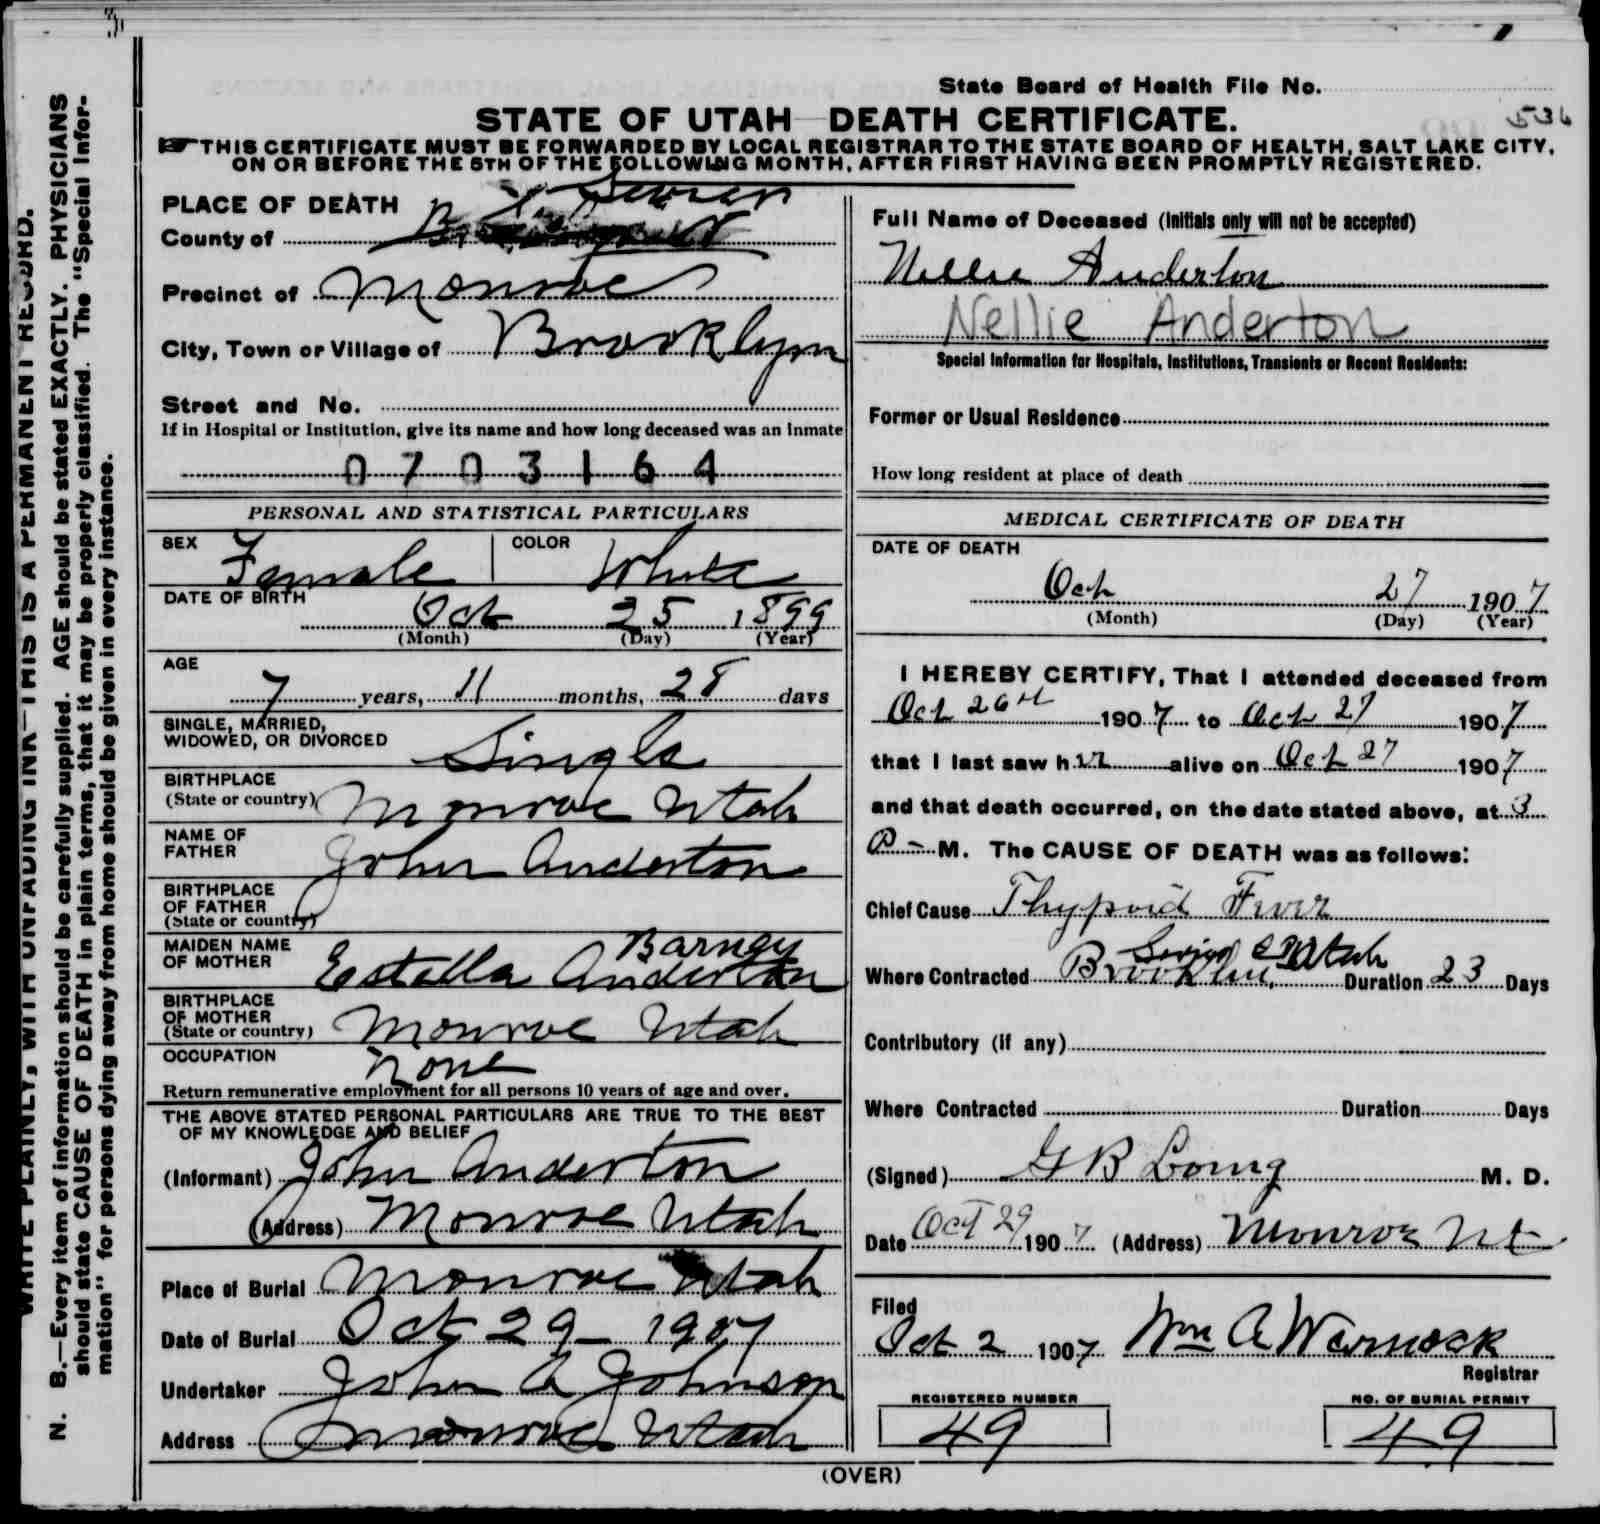 State Board of Health File No.
536
STATE OF UTAH—DEATH CERTIFICATE.
☞THIS CERTIFICATE MUST BE FORWARDED BY LOCAL REGISTRAR TO THE STATE BOARD OF HEALTH, SALT LAKE CITY,
ON OR BEFORE THE 5TH OF THE FOLLOWING MONTH, AFTER FIRST HAVING BEEN PROMPTLY REGISTERED.
PLACE OF DEATH
County of Sevier
Precinct of Monroe
City, Town or Village of Brooklyn
Street and No.
If in Hospital or Institution, give its name and how long deceased was an inmate
0703164
PERSONAL AND STATISTICAL PARTICULARS
SEX Female COLOR White
DATE OF BIRTH
Oct 25 1899
(Month) (Day) (Year)
AGE
7 years, 11 months, 28 days
SINGLE, MARRIED,
WIDOWED, OR DIVORCED Single
BIRTHPLACE
(State or country) Monroe Utah
NAME OF
FATHER John Anderton
BIRTHPLACE
OF FATHER
(State or country)
MAIDEN NAME Barney
OF MOTHER Estella Anderton
BIRTHPLACE
OF MOTHER
(State or country) Monroe Utah
OCCUPATION None
Return remunerative employment for all persons 10 years of age and over.
THE ABOVE STATED PERSONAL PARTICULARS ARE TRUE TO THE BEST
OF MY KNOWLEDGE AND BELIEF
(Informant) John Anderton
(Address) Monroe Utah
Place of Burial Monroe Utah
Date of Burial Oct 29 - 1907
Undertaker John A Johnson
Address Monroe Utah
Full Name of Deceased (Initials only will not be accepted)
Nellie Anderton
Nellie Anderton
Special Information for Hospitals, Institutions, Transients or Recent Residents:
Former or Usual Residence
How long resident at place of death
MEDICAL CERTIFICATE OF DEATH
DATE OF DEATH
Oct 27 1907
(Month) (Day) (Year)
I HEREBY CERTIFY, That I attended deceased from
Oct 26th 1907 to Oct 27 1907
that I last saw her alive on Oct 27 1907
and that death occurred, on the date stated above, at 3
P - M. The CAUSE OF DEATH was as follows:
Chief Cause Thypoid Fever
Sevier Co Utah
Where Contracted Brooklin, Duration 23 Days
Contributory (if any)
Where Contracted Duration Days
(Signed) G B Loring M. D.
Date Oct 29 1907 (Address) Monroe Ut
Filed
Oct 2 1907 Wm A Warnock
Registrar
REGISTERED NUMBER NO. OF BURIAL PERMIT
49 49
(OVER)
WRITE PLAINLY, WITH UNFADING INK—THIS IS A PERMANENT RECORD.
N. B.—Every item of information should be carefully supplied. AGE should be stated EXACTLY. PHYSICIANS
should state CAUSE OF DEATH in plain terms, that it may be properly classified. The "Special Infor-
mation" for persons dying away from home should be given in every instance.